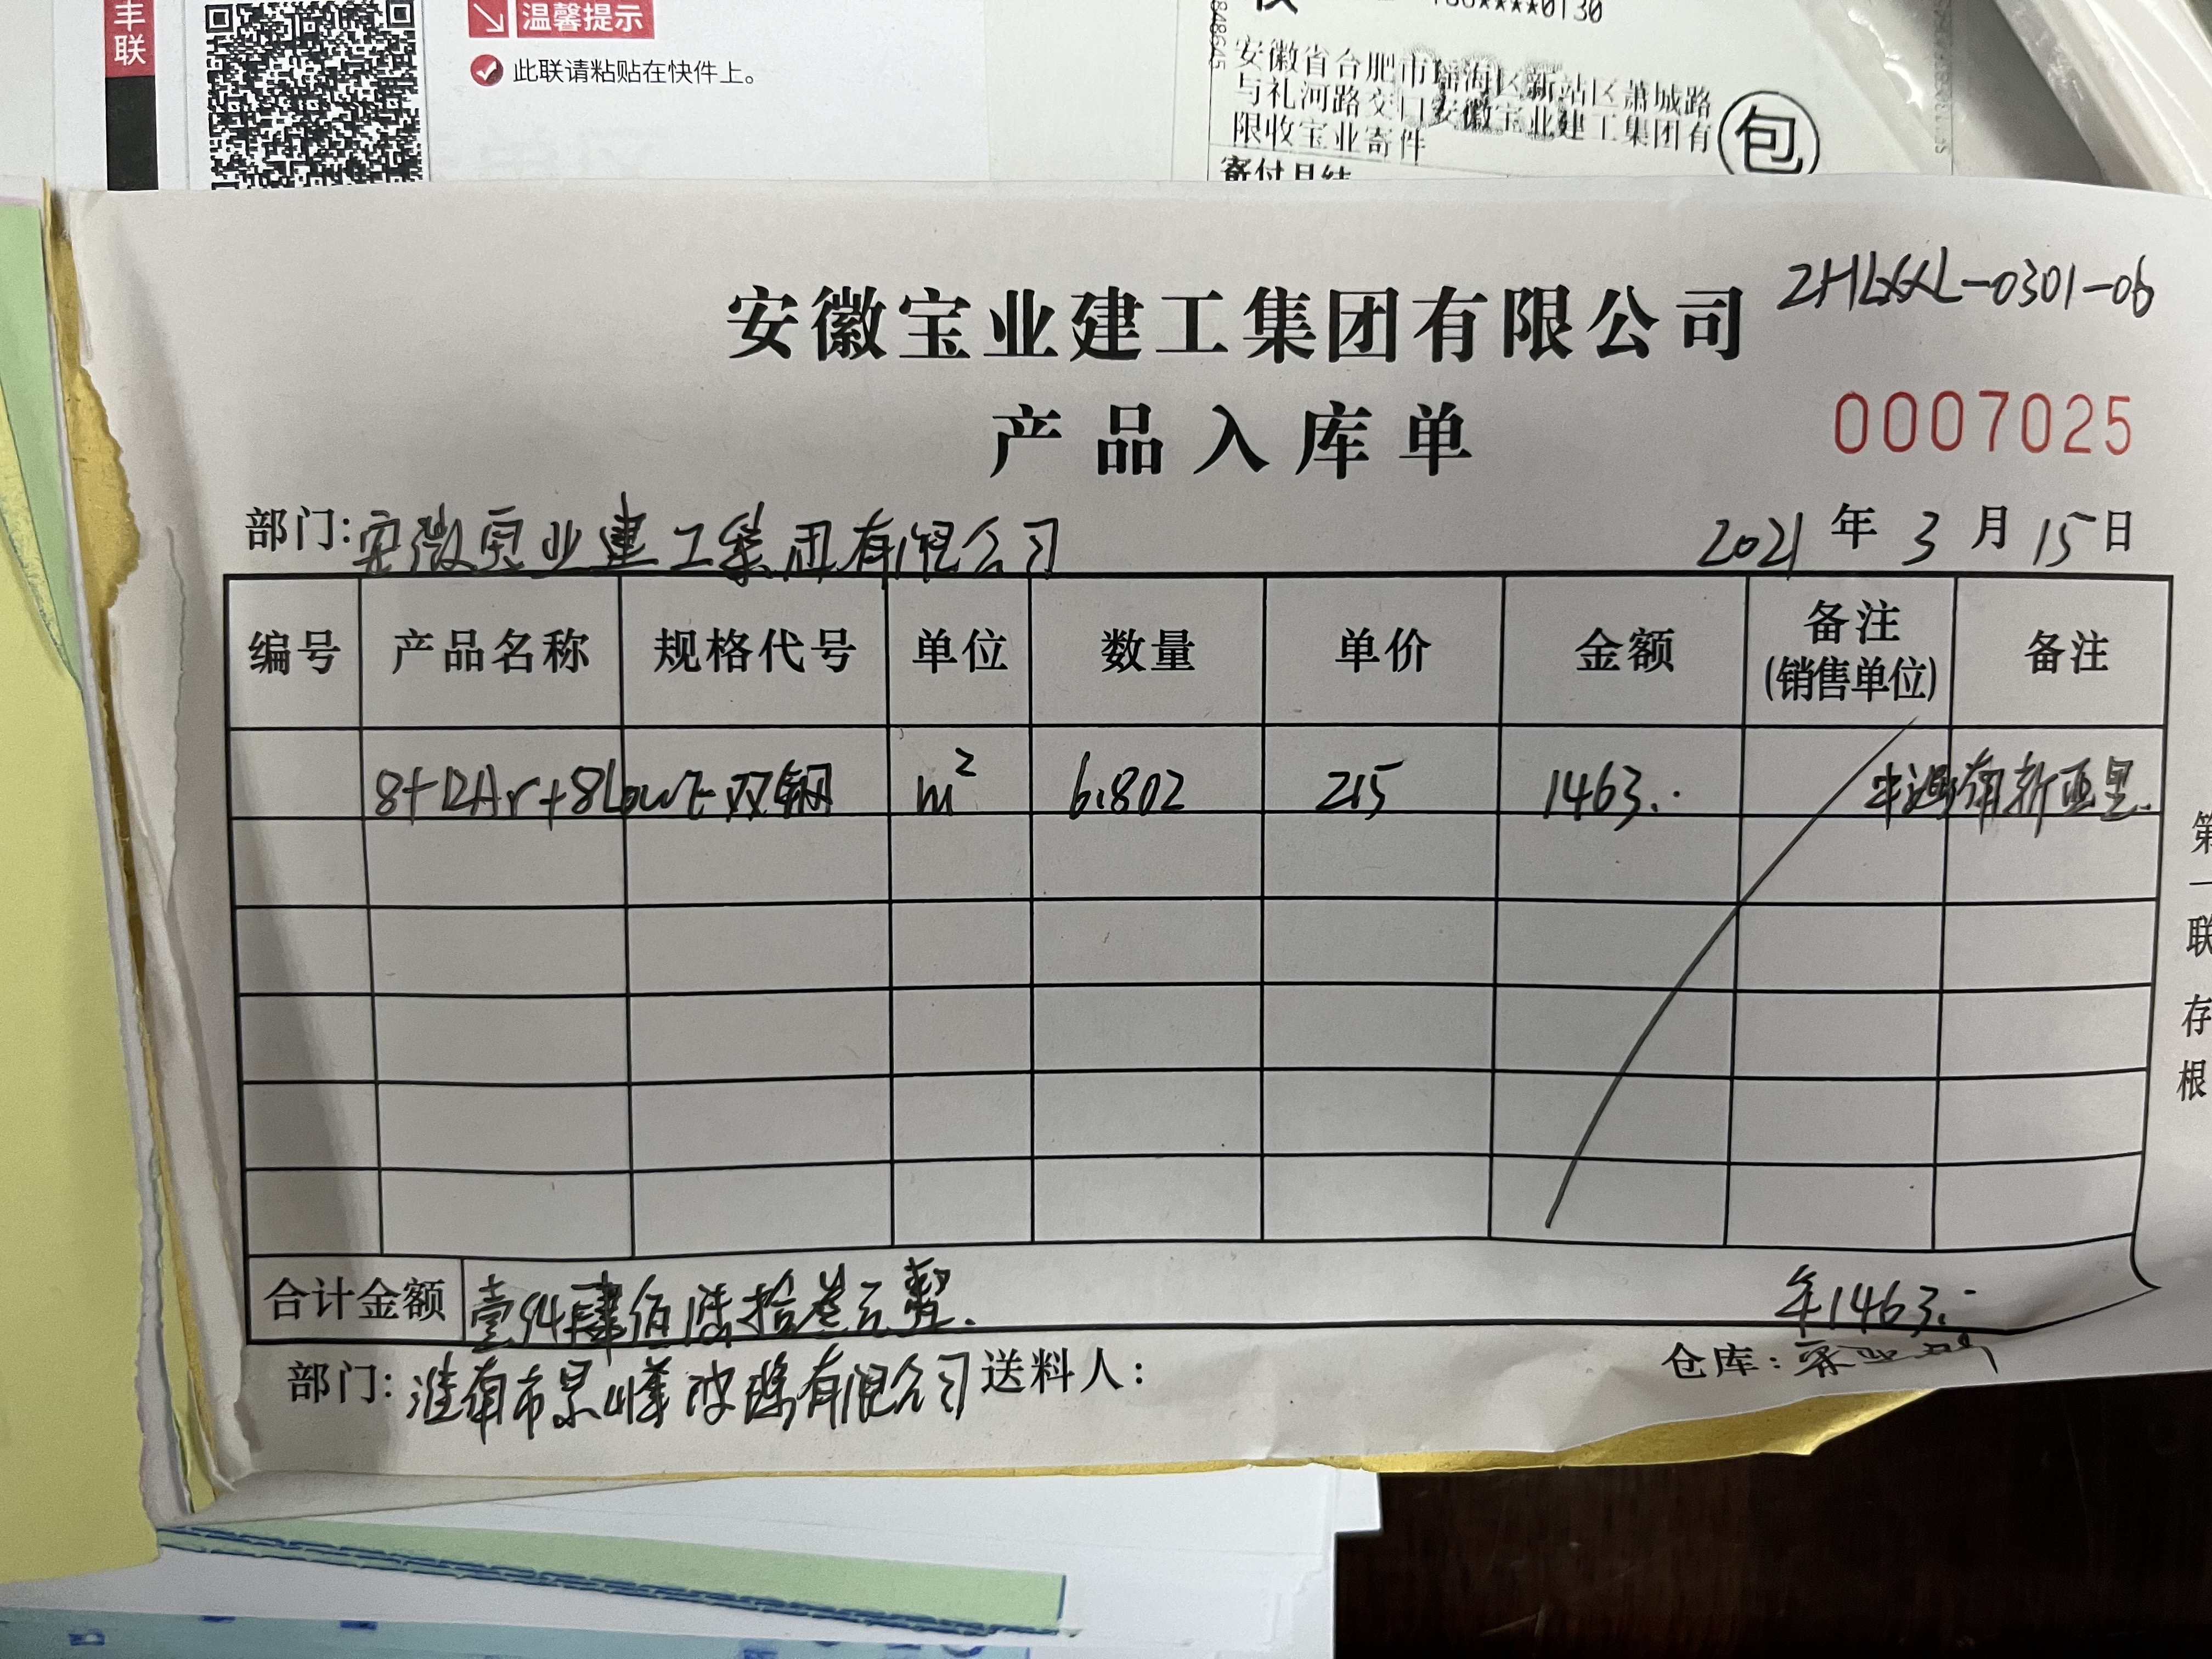 丰
联
温馨提示
此联请粘贴在快件上。
0130
安徽省合肥市瑶海区新站区萧城路
与礼河路交口安徽宝业建工集团有
限收宝业寄件
寄付月结
包
848645
ZHLXXL-0301-06
安徽宝业建工集团有限公司
产品入库单
0007025
部门: 安徽宝业建工集团有限公司 2021 年 3 月 15 日
编号 产品名称 规格代号 单位 数量 单价 金额 备注(销售单位) 备注
8+12Ar+8LowE双钢 m² 6.802 215 1463.- 新亚里
合计金额 壹仟肆佰陆拾叁元整. ¥1463.-
部门: 淮南市景峰玻璃有限公司 送料人: 仓库:
第一联 存根